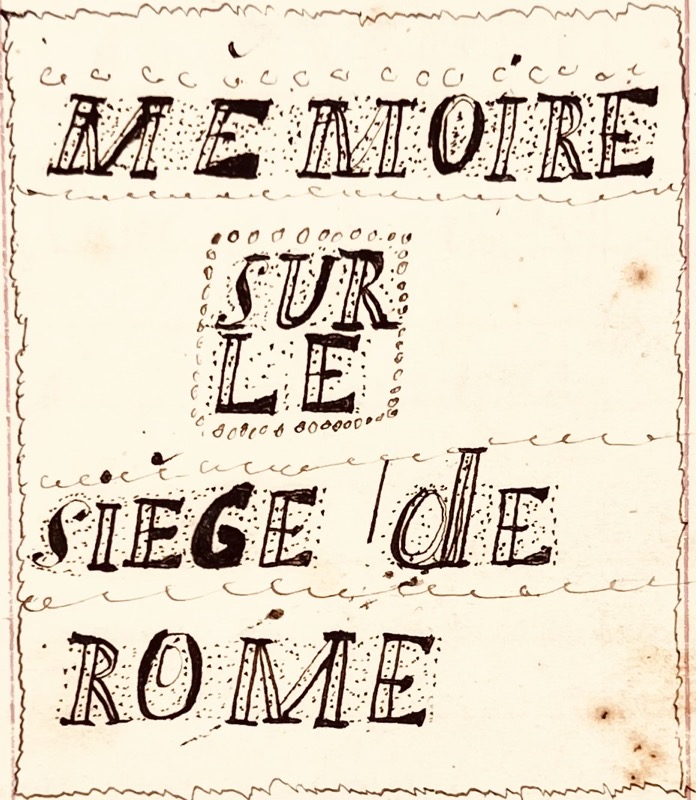 MÉMOIRE
SUR
LE
SIEGE de
ROME